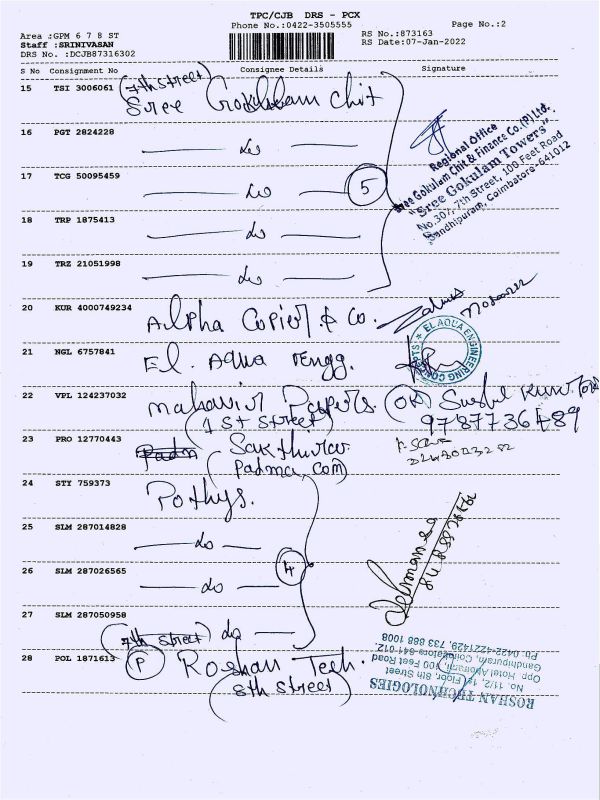 TPC/CJB DRS - PCX
Phone No.:0422-3505555
Page No.:2
Area :GPM 6 7 8 ST
Staff :SRINIVASAN
DRS No. :DCJB87316302
RS No.:873163
RS Date:07-Jan-2022
S No Consignment No Consignee Details Signature
15 TSI 3006061 (7th street)
Sree Gokulam Chit
16 PGT 2824228
do
17 TCG 50095459
do
5
18 TRP 1875413
do
19 TRZ 21051998
do
Regional Office
Sree Gokulam Chit & Finance Co.(P) Ltd.
"Sree Gokulam Towers"
No.307, 7th Street, 100 Feet Road
Gandhipuram, Coimbatore-641012
20 KUR 4000749234
Alpha Copier & Co.
21 NGL 6757841
El. Aqua Engg.
EL AQUA ENGINEERING
22 VPL 124237032
Mahavir Papers.
(1st street)
9787736489
23 PRO 12770443
Padm
Padma, Com)
24 STY 759373
Pothys.
25 SLM 287014828
do
26 SLM 287026565
do
4
27 SLM 287050958
(7th street) do
28 POL 1871613
P Roshan Tech.
(8th street)
ROSHAN TECHNOLOGIES
No. 11/2, 1st Floor, 8th Street
Opp. Hotel 100 Feet Road
Gandhipuram, Coimbatore-641 012.
Ph: 0422-4221429, 733 888 1008